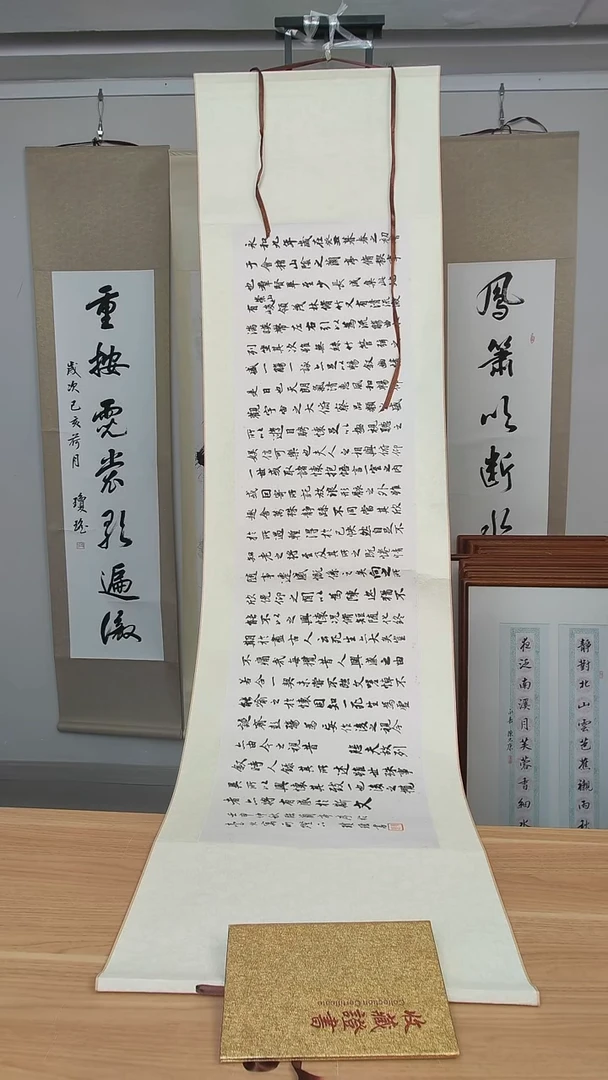 重按霓裳歌遍徹
歲次己亥荷月
瓊瑤
永和九年歲在癸丑暮春之初
于會稽山陰之蘭亭脩禊事
也羣賢畢至少長咸集此地
有崇山峻領茂林脩竹又有清流激
湍暎帶左右引以為流觴曲
列坐其次雖無絲竹管絃之
盛一觴一詠亦足以暢敘幽情
是日也天朗氣清惠風和暢仰
觀宇宙之大俯察品類之盛
所以遊目騁懷足以極視聽之
娛信可樂也夫人之相與俯仰
一世或取諸懷抱悟言一室之內
或因寄所託放浪形骸之外雖
趣舍萬殊靜躁不同當其欣
於所遇暫得於己快然自足不
知老之將至及其所之既惓情
隨事遷感慨係之矣向之所
欣俛仰之閒以為陳迹猶不
能不以之興懷況脩短隨化終
期於盡古人云死生亦大矣豈
不痛哉每攬昔人興感之由
若合一契未嘗不臨文嗟悼不
能喻之於懷固知一死生為虛
誕齊彭殤為妄作後之視今
亦由今之視昔悲夫故列
敘時人錄其所述雖世殊事
異所以興懷其致一也後之攬
者亦將有感於斯文
鳳簫吹斷水
靜對北山雲芭蕉襯雨秋
夜泛南溪月芙蓉香細水
收藏證書
Collection Certificate